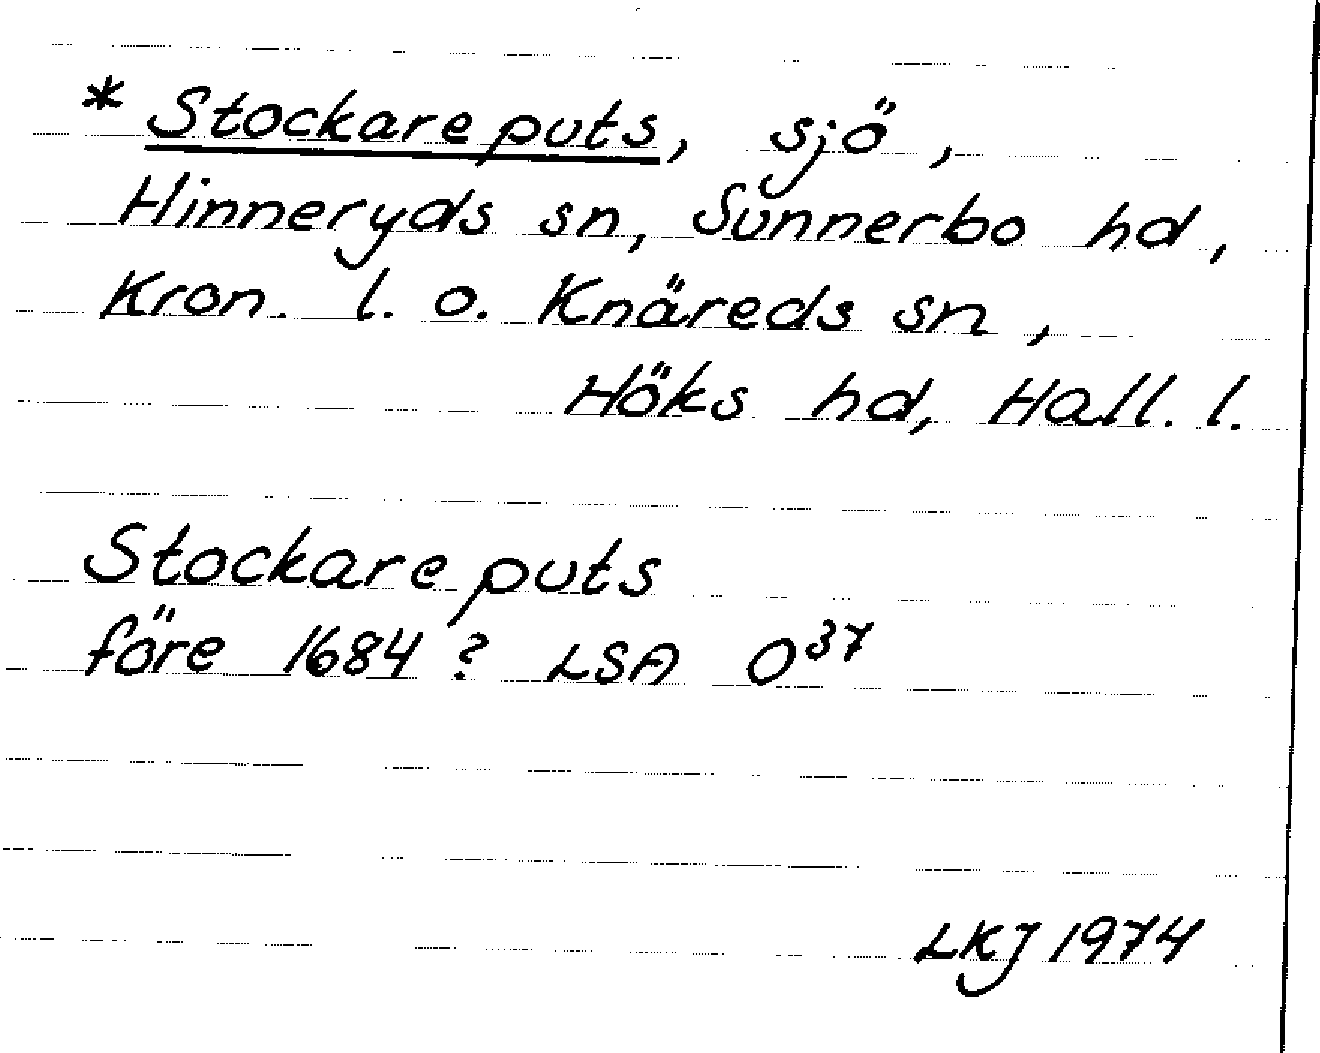 * Stockareputs, sjö,
Hinneryds sn, Sunnerbo hd,
Kron. l. o. Knäreds sn,
Höks hd, Hall. l.
Stockareputs
före 1684? LSA O³⁷
LKJ 1974